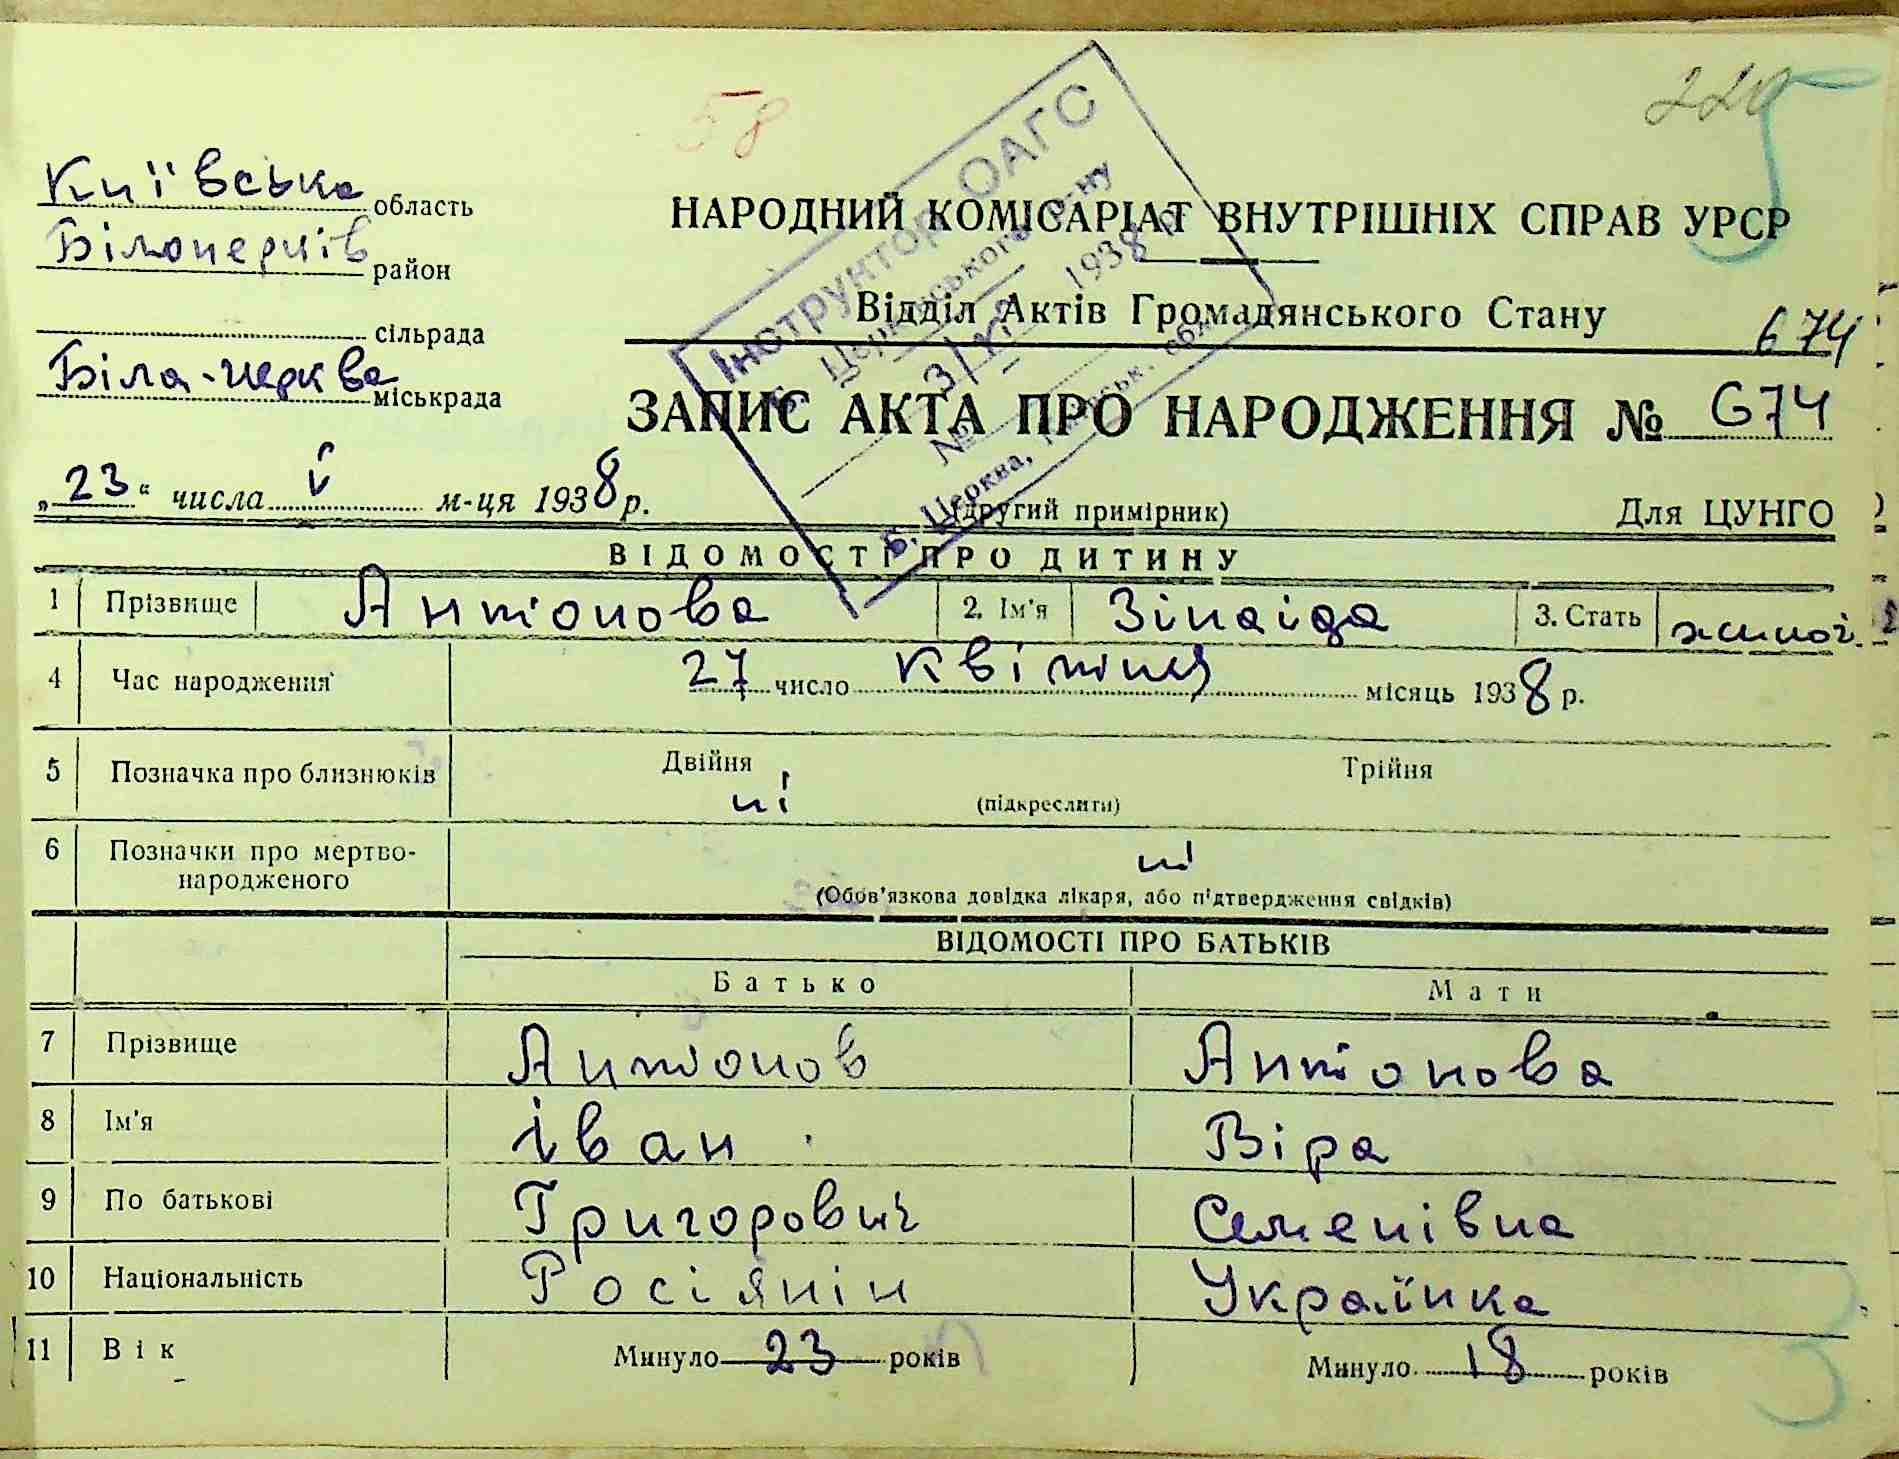 58
220
Київська область
Білоцерків район
сільрада
Біла-церква міськрада
НАРОДНИЙ КОМІСАРІАТ ВНУТРІШНІХ СПРАВ УРСР
Відділ Актів Громадянського Стану
674
ЗАПИС АКТА ПРО НАРОДЖЕННЯ № 674
„23“ числа V м-ця 1938 р.
(другий примірник)
Для ЦУНГО
Інструктор ОАГС
Б. Церквського р-ну
31/XII 1938 р.
№
Б. Церква, обл.
ВІДОМОСТІ ПРО ДИТИНУ
1 Прізвище Антонова 2. Ім'я Зінаіда 3. Стать жіночі.
4 Час народження 27 число квітня місяць 1938 р.
5 Позначка про близнюків Двійня Трійня
ні (підкреслити)
6 Позначки про мертво-
народженого ні
(Обов'язкова довідка лікаря, або підтвердження свідків)
ВІДОМОСТІ ПРО БАТЬКІВ
Батько Мати
7 Прізвище Антонов Антонова
8 Ім'я Іван Віра
9 По батькові Григорович Семенівна
10 Національність Росіянін Українка
11 Вік Минуло 23 років Минуло 18 років